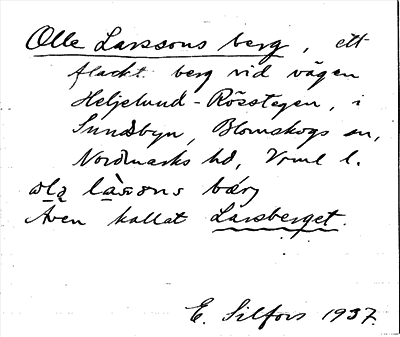 Olle Larssons berg, ett
flackt berg vid vägen
Heljelund-Rösstegen, i
Sundsbyn, Blomskogs sn,
Nordmarks hd, Vrml l.
ola làsons bærj
Även kallat Larsberget.
E. Silfors 1937.